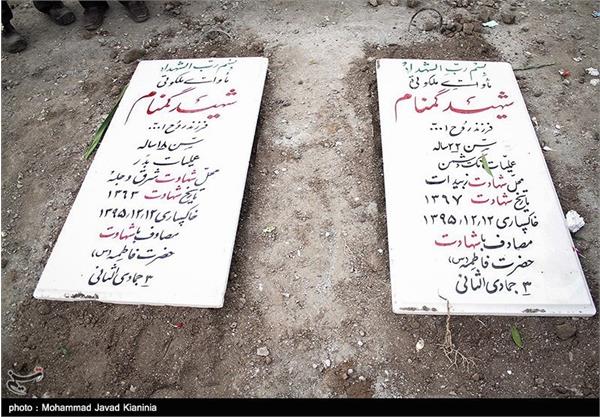 بسم رب الشهداء
مأوای ملکوتی
شهید گمنام
فرزند روح ا...
سن ۲۲ ساله
عملیات تک دشمن
محل شهادت زبیدات
تاریخ شهادت ۱۳۶۷
خاکسپاری ۱۳۹۵/۱۲/۱۲
مصادف با شهادت
حضرت فاطمه (س)
۳ جمادی الثانی
بسم رب الشهداء
مأوای ملکوتی
شهید گمنام
فرزند روح ا...
سن ۱۸ ساله
عملیات بدر
محل شهادت شرق دجله
تاریخ شهادت ۱۳۶۳
خاکسپاری ۱۳۹۵/۱۲/۱۲
مصادف با شهادت
حضرت فاطمه (س)
۳ جمادی الثانی
تسنیم
photo : Mohammad Javad Kianinia